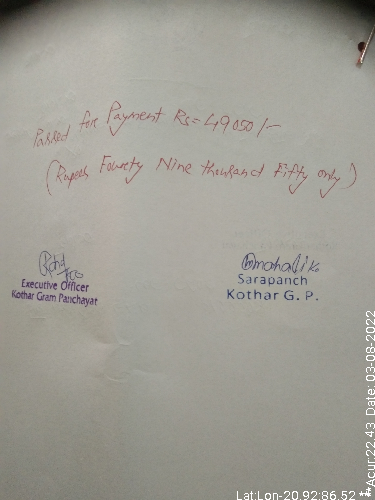 Passed for Payment Rs=49050/-
(Rupees Fourety Nine thousand Fifty only)
Executive Officer
Kothar Gram Panchayat
Sarapanch
Kothar G. P.
Lat:Lon-20.92:86.52 **Acur:22.43 Date: 03-08-2022